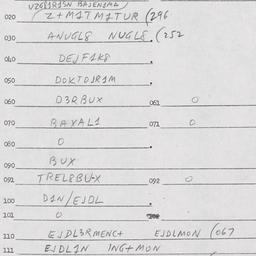 020 Z+M1TM1TUR (296
030 ANUGL8 NUGL8. (252
040 DEJF1K8 .
050 DOKTDJR1M .
060 D3RBUX 061 0
070 RAYAL1 071 0
080 0 .
090 BUX
091 TREL8BUX 092 0
100 D1N/EJDL
101 0
110 EJDL3RMENC+ EJDLMON (067
111 EJDL1N ING+MON